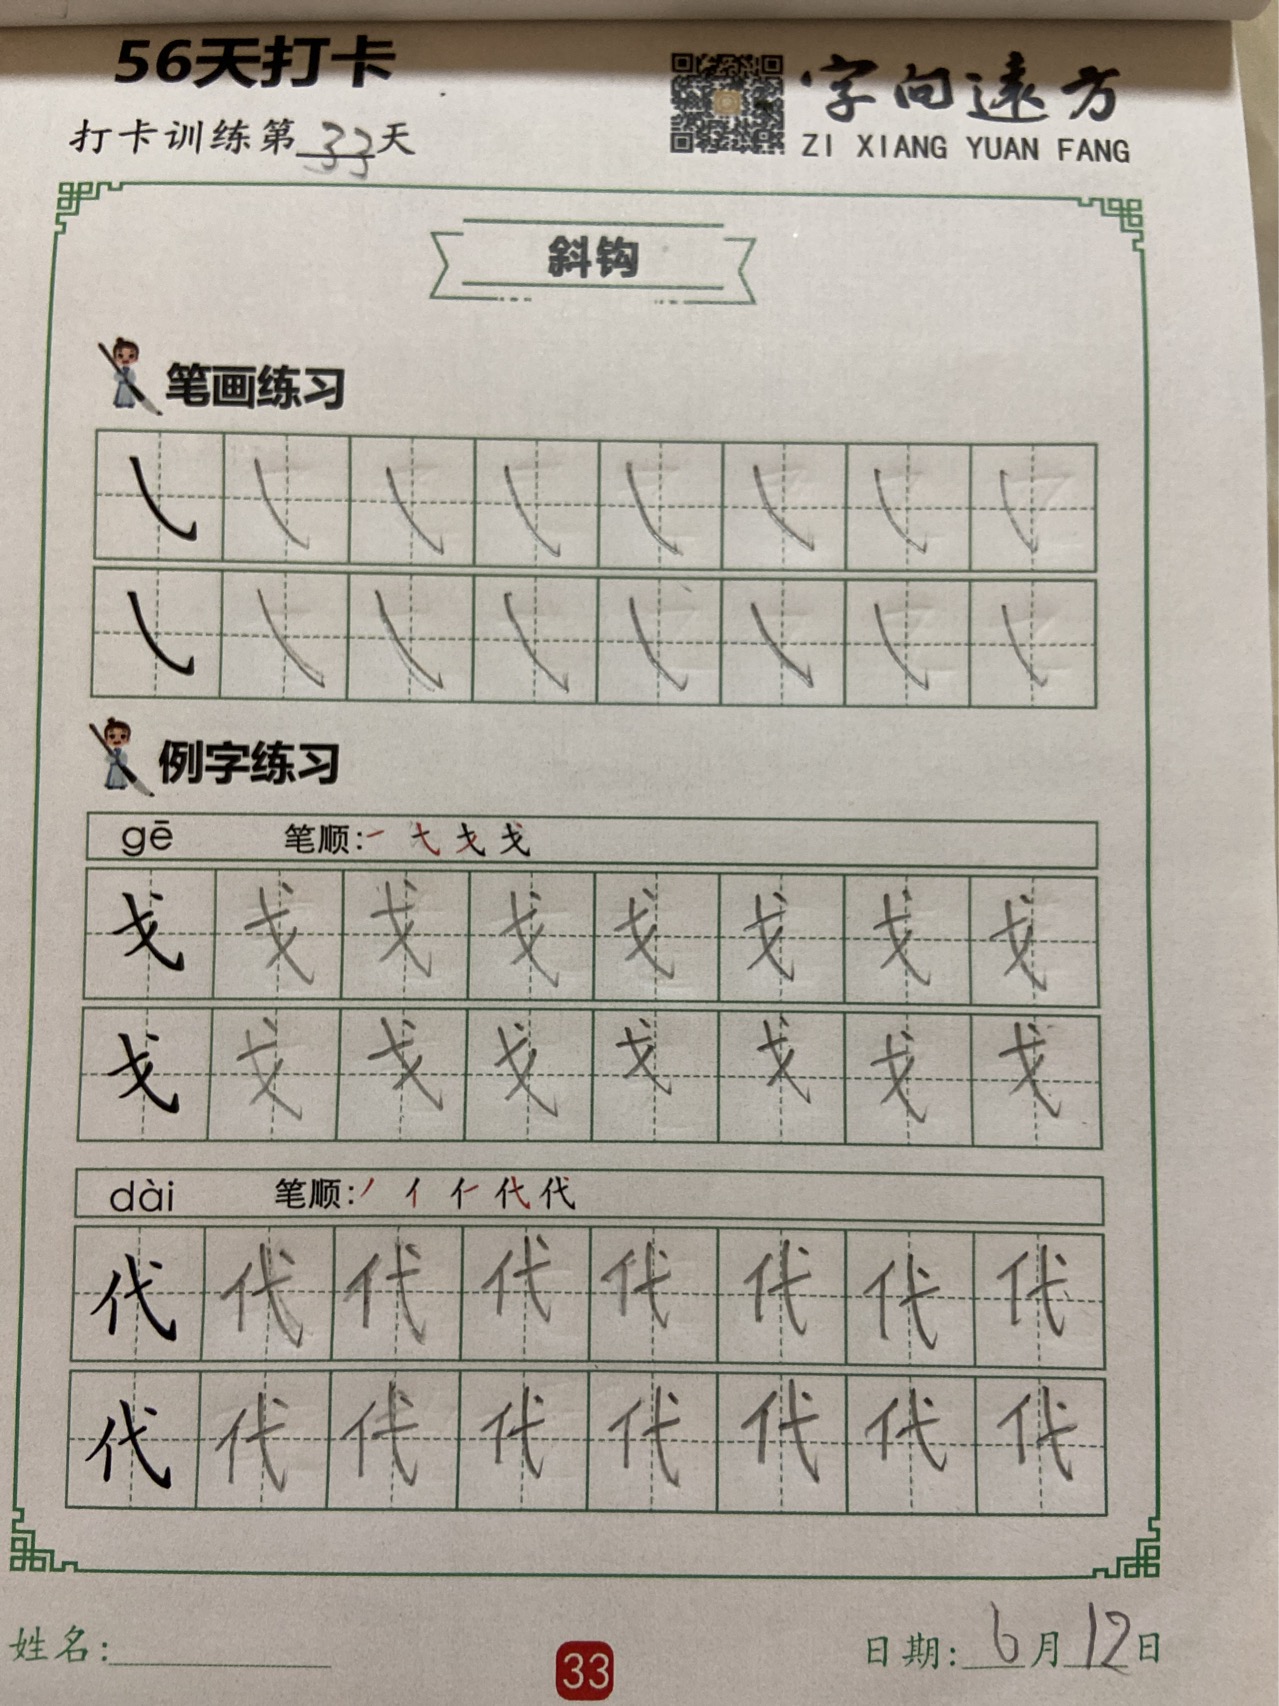 56天打卡
字向远方
打卡训练第33天
ZI XIANG YUAN FANG
斜钩
笔画练习
㇂ ㇂ ㇂ ㇂ ㇂ ㇂ ㇂ ㇂
㇂ ㇂ ㇂ ㇂ ㇂ ㇂ ㇂ ㇂
例字练习
gē 笔顺:一 弋 戈 戈
戈 戈 戈 戈 戈 戈 戈 戈
戈 戈 戈 戈 戈 戈 戈 戈
dài 笔顺:丿 亻 仁 代 代
代 代 代 代 代 代 代 代
代 代 代 代 代 代 代 代
姓名:
33
日期:6月12日